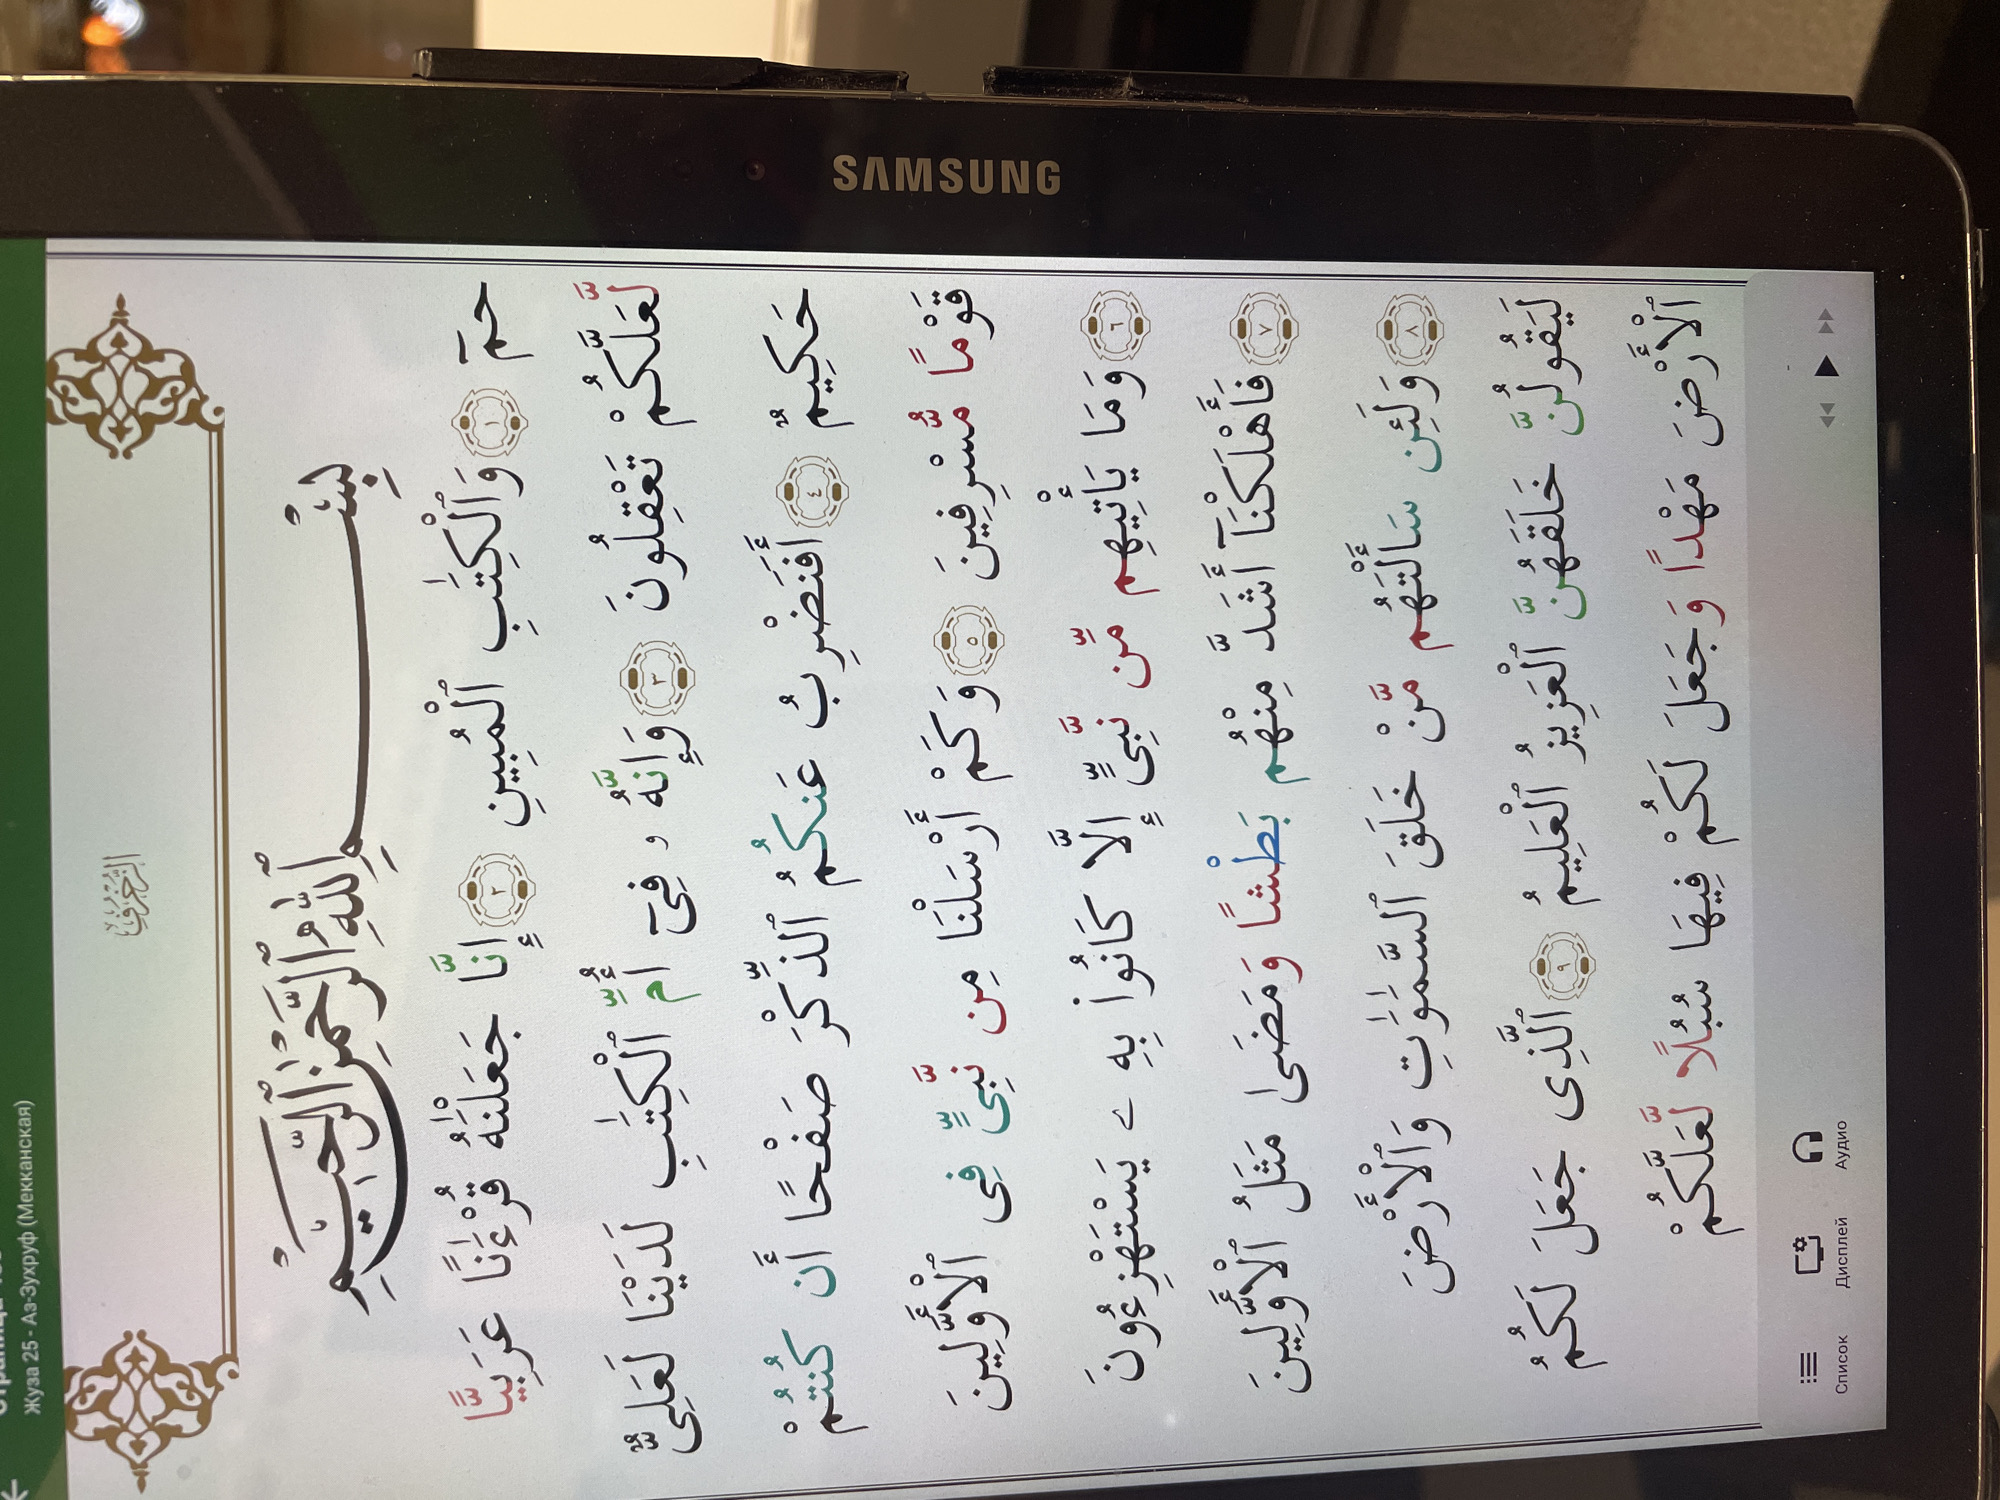 SAMSUNG
Жуза 25 - Аз-Зухруф (Мекканская)
الزُّخْرُف
بِسْمِ ٱللَّهِ ٱلرَّحْمَٰنِ ٱلرَّحِيمِ
حمٓ ١ وَٱلْكِتَٰبِ ٱلْمُبِينِ ٢ إِنَّا جَعَلْنَٰهُ قُرْءَٰنًا عَرَبِيًّا
لَّعَلَّكُمْ تَعْقِلُونَ ٣ وَإِنَّهُۥ فِىٓ أُمِّ ٱلْكِتَٰبِ لَدَيْنَا لَعَلِىٌّ
حَكِيمٌ ٤ أَفَنَضْرِبُ عَنكُمُ ٱلذِّكْرَ صَفْحًا أَن كُنتُمْ
قَوْمًا مُّسْرِفِينَ ٥ وَكَمْ أَرْسَلْنَا مِن نَّبِىٍّ فِى ٱلْأَوَّلِينَ
٦ وَمَا يَأْتِيهِم مِّن نَّبِىٍّ إِلَّا كَانُوا۟ بِهِۦ يَسْتَهْزِءُونَ
٧ فَأَهْلَكْنَآ أَشَدَّ مِنْهُم بَطْشًا وَمَضَىٰ مَثَلُ ٱلْأَوَّلِينَ
٨ وَلَئِن سَأَلْتَهُم مَّنْ خَلَقَ ٱلسَّمَٰوَٰتِ وَٱلْأَرْضَ
لَيَقُولُنَّ خَلَقَهُنَّ ٱلْعَزِيزُ ٱلْعَلِيمُ ٩ ٱلَّذِى جَعَلَ لَكُمُ
ٱلْأَرْضَ مَهْدًا وَجَعَلَ لَكُمْ فِيهَا سُبُلًا لَّعَلَّكُمْ
Список Дисплей Аудио